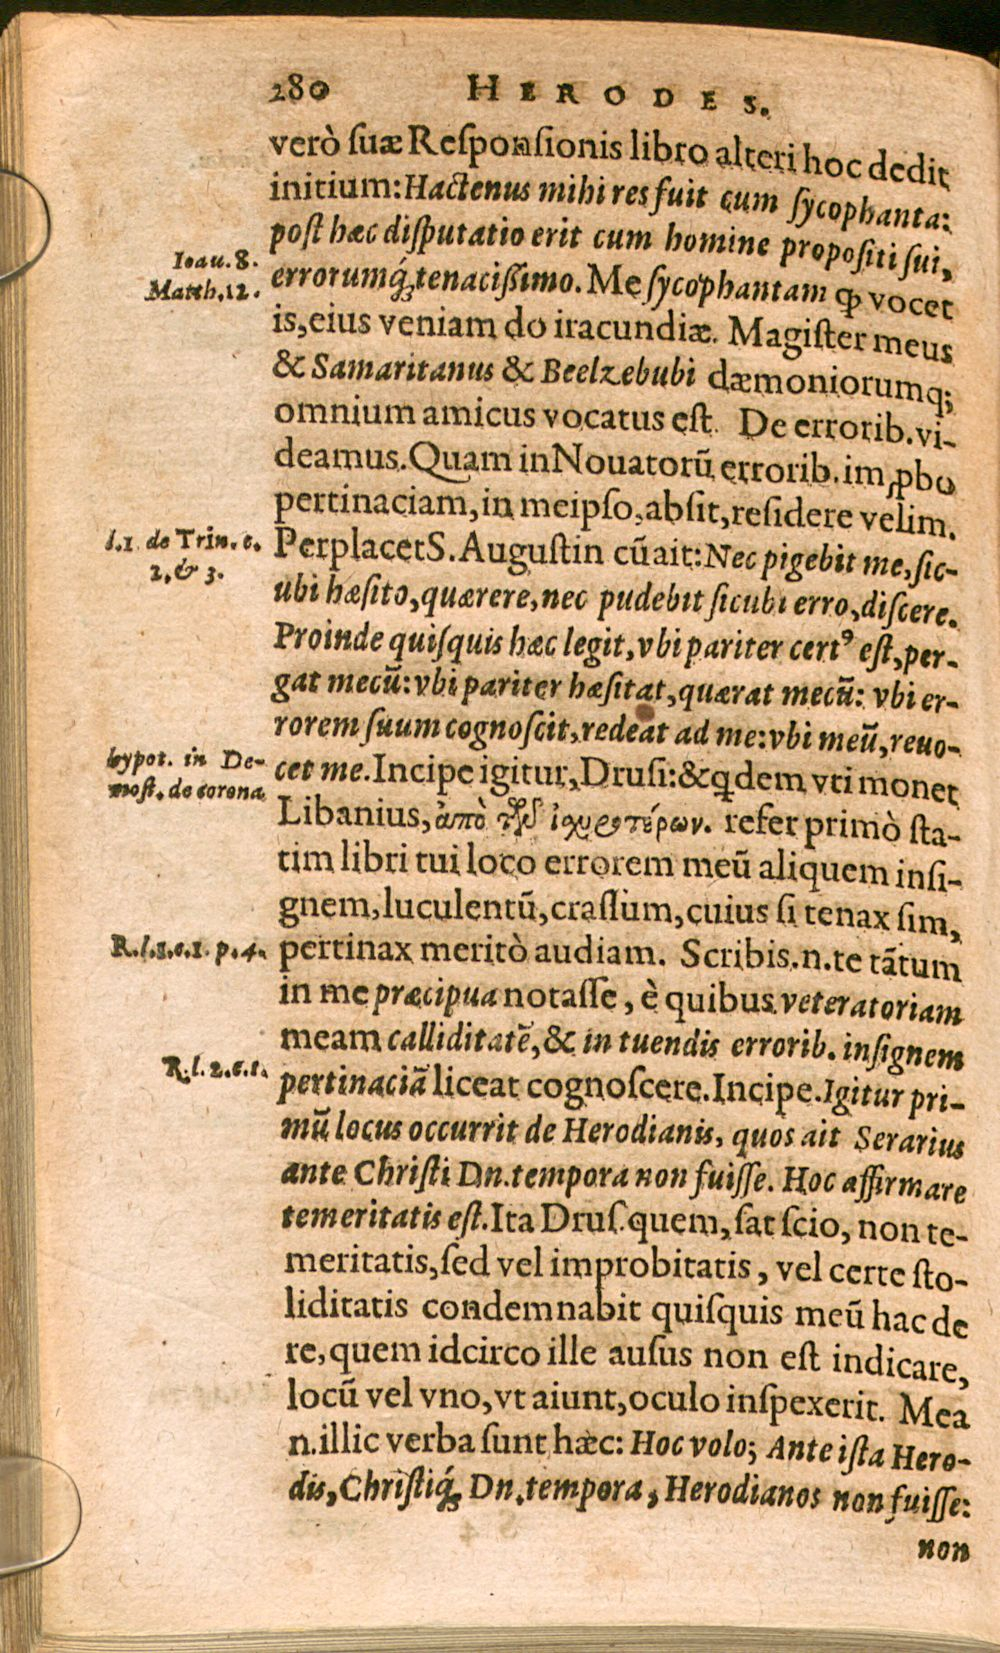 280 HERODES.
verò suæ Responsionis libro alteri hoc dedit
initium: Hactenus mihi res fuit cum sycophanta:
post hæc disputatio erit cum homine propositi sui,
Ioau. 8.
errorumq́; tenacissimo. Me sycophantam ꝙ vocet
Matth. 12.
is, eius veniam do iracundiæ. Magister meus
& Samaritanus & Beelzebubi dæmoniorumq;
omnium amicus vocatus est. De errorib. vi-
deamus. Quam in Nouatorũ errorib. im ꝓbo
pertinaciam, in meipso, absit, residere velim.
l. 1. de Trin. c.
2. & 3.
Perplacet S. Augustin cũ ait: Nec pigebit me, sic-
ubi hæsito, quærere, nec pudebit sicubi erro, discere.
Proinde quisquis hæc legit, vbi pariter certꝰ est, per-
gat mecũ: vbi pariter hæsitat, quærat mecũ: vbi er-
rorem suum cognoscit, redeat ad me: vbi meũ, reuo-
hypot. in De-
most. de corona
cet me. Incipe igitur, Drusi: & qdem vti monet
Libanius, ἀπὸ τῶν ἰσχυροτέρων. refer primò sta-
tim libri tui loco errorem meũ aliquem insi-
gnem, luculentũ, crassum, cuius si tenax sim,
R. l. 1. c. 1. p. 4.
pertinax meritò audiam. Scribis .n. te tãtum
in me præcipua notasse, è quibus veteratoriam
meam calliditatẽ, & in tuendis errorib. insignem
R. l. 2. c. 1.
pertinaciã liceat cognoscere. Incipe. Igitur pri-
mũ locus occurrit de Herodianis, quos ait Serarius
ante Christi Dn. tempora non fuisse. Hoc affirmare
temeritatis est. Ita Drus. quem, sat scio, non te-
meritatis, sed vel improbitatis, vel certe sto-
liditatis condemnabit quisquis meũ hac de
re, quem idcirco ille ausus non est indicare,
locũ vel vno, vt aiunt, oculo inspexerit. Mea
n. illic verba sunt hæc: Hoc volo; Ante ista Hero-
dis, Christiq́; Dn. tempora, Herodianos non fuisse:
non